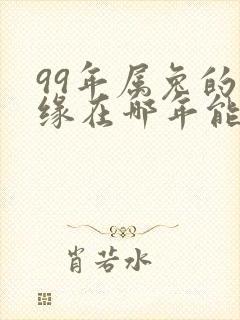 99年属兔的
缘在哪年能
肖若水